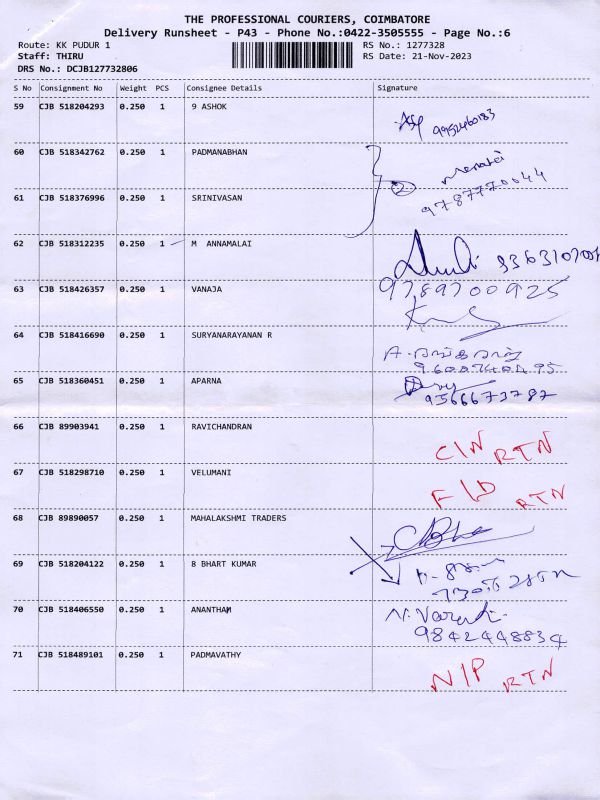 THE PROFESSIONAL COURIERS, COIMBATORE
Delivery Runsheet - P43 - Phone No.:0422-3505555 - Page No.:6
Route: KK PUDUR 1 RS No.: 1277328
Staff: THIRU RS Date: 21-Nov-2023
DRS No.: DCJB127732806
S No Consignment No Weight PCS Consignee Details Signature
59 CJB 518204293 0.250 1 9 ASHOK
60 CJB 518342762 0.250 1 PADMANABHAN
2
61 CJB 518376996 0.250 1 SRINIVASAN
9787770044
62 CJB 518312235 0.250 1 M ANNAMALAI
63 CJB 518426357 0.250 1 VANAJA 9789700925
64 CJB 518416690 0.250 1 SURYANARAYANAN R
65 CJB 518360451 0.250 1 APARNA
9566673787
66 CJB 89903941 0.250 1 RAVICHANDRAN C/N RTN
67 CJB 518298710 0.250 1 VELUMANI F/D RTN
68 CJB 89890057 0.250 1 MAHALAKSHMI TRADERS
69 CJB 518204122 0.250 1 B BHART KUMAR
70 CJB 518406550 0.250 1 ANANTHAM
9842448834
71 CJB 518489101 0.250 1 PADMAVATHY N/P RTN